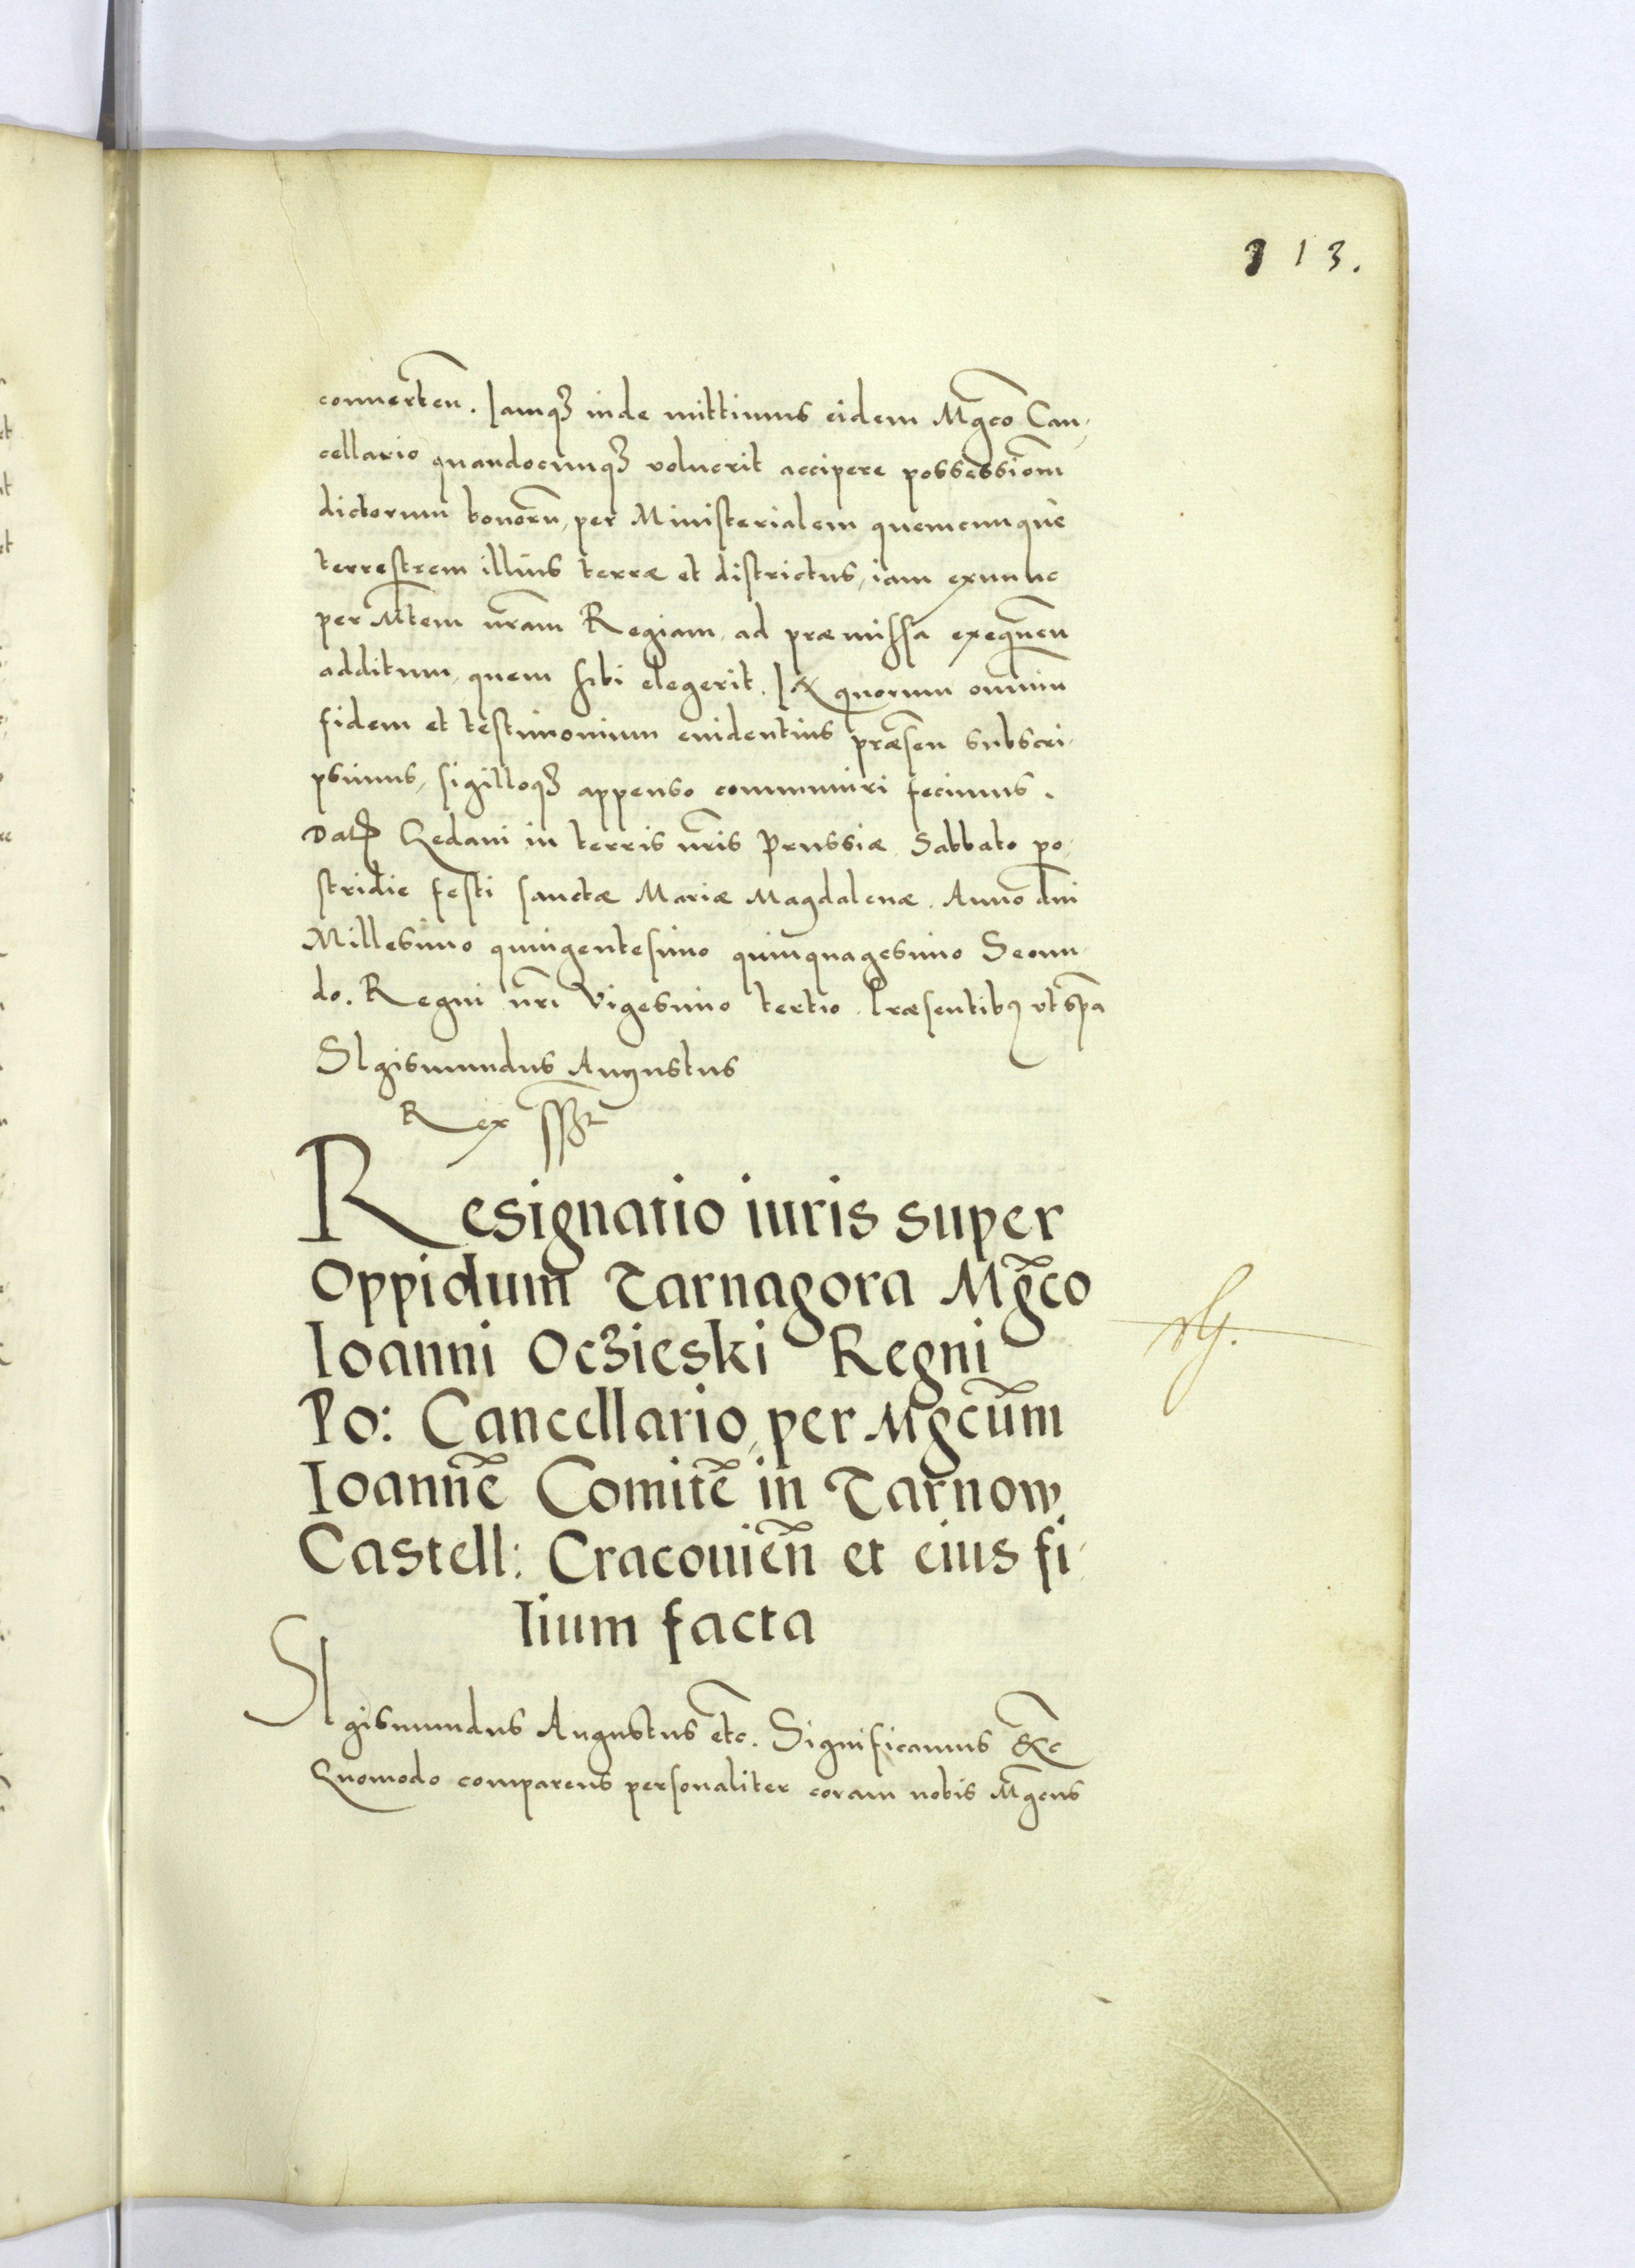 113.
conuerten̄. Iamqꝫ inde mittimus eidem Mgc̄o Can-
cellario quandocunqꝫ voluerit accipere possessionē
dictorum bonorū, per Ministerialem quemcunque
terrestrem illius terræ et districtus, iam exnunc
per Mt̄em nr̄am Regiam, ad præmissa exequen̄
additum, quem sibi elegerit. In quorum omniū
fidem et testimonium euidentius præsen̄ subscri-
psimus, sigilloqꝫ appenso communiri fecimus.
Dat̄ Gedani in terris nr̄is Prussiæ Sabbato po-
stridie festi sanctæ Mariæ Magdalenæ. Anno dn̄i
Millesimo quingentesimo quinquagesimo Secun-
do. Regni nr̄i Vigesimo tertio. Præsentibꝫ vt sp̄a
SIgismundus Augustus
Rex sst
Resignatio iuris super
Oppidum Tarnagora Mgc̄o
Ioanni Oczieski Regni
Po: Cancellario, per Mgcūm
Ioannē Comitē in Tarnow
Castell: Cracouien̄ et eius fi-
lium facta
SIgismundus Augustus etc. Significamus &c
Quomodo comparens personaliter coram nobis Mgcus